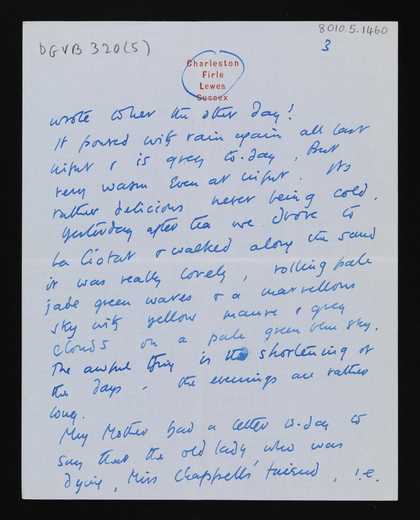 DGVB 320(5)
8010.5.1460
3
Charleston
Firle
Lewes
Sussex
wrote to her the other day!
It poured with rain again all last
night & is grey to-day, But
very warm even at night. Its
rather delicious never being cold.
Yesterday after tea we drove to
La Ciotat & walked along the sand
it was really lovely, rolling pale
jade green waves & a marvellous
sky with yellow mauve & grey
clouds on a pale green blue sky.
The awful thing is the shortening of
the days - the evenings are rather
long.
My Mother had a letter to-day to
say that the old lady who was
dying, Miss Chappell's friend, i.e.